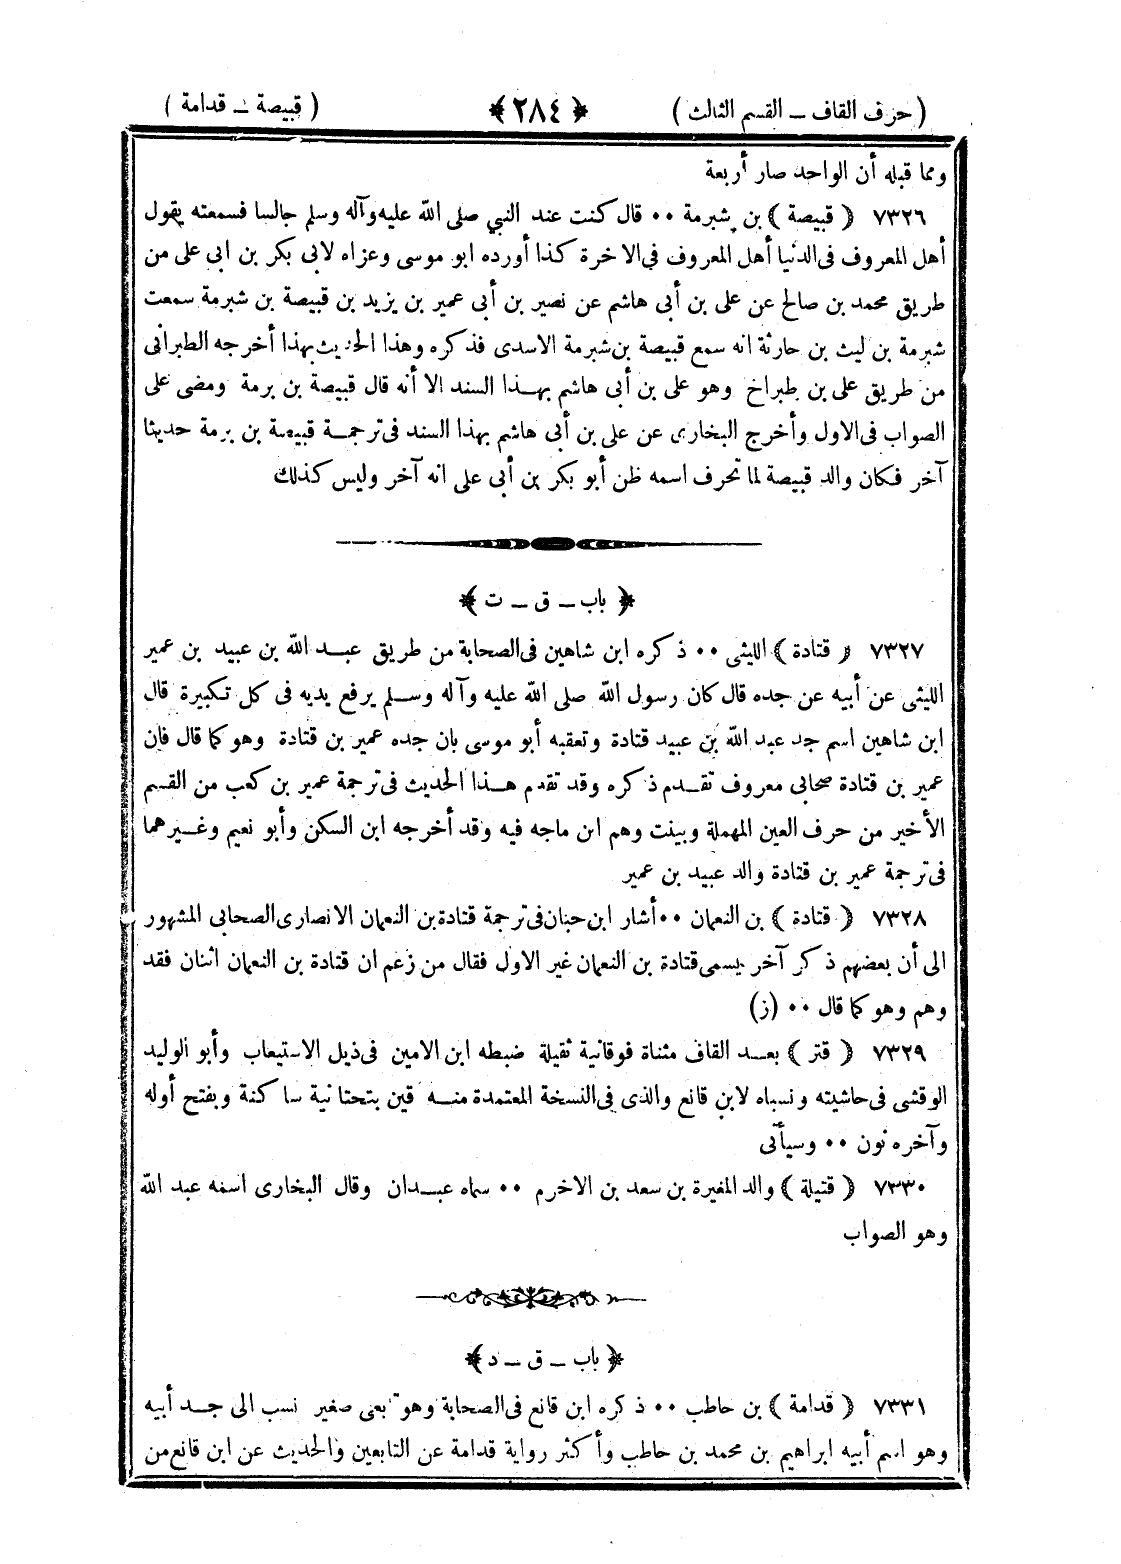 ( حرف القاف ــ القسم الثالث ) ﴿ ٢٨٤ ﴾ ( قبيصة ــ قدامة )
ومما قبله أن الواحد صار أربعة
٧٣٢٦ ﴿ قبيصة ﴾ بن شبرمة ٠٠ قال كنت عند النبي صلى الله عليه وآله وسلم جالسا فسمعته يقول
أهل المعروف فى الدنيا أهل المعروف فى الاخرة كذا أورده ابو موسى وعزاه لابى بكر بن ابى على من
طريق محمد بن صالح عن على بن أبى هاشم عن نصير بن أبى عمير بن يزيد بن قبيصة بن شبرمة سمعت
شبرمة بن ليث بن حارثة انه سمع قبيصة بن شبرمة الاسدى فذكره وهذا الحديث بهذا أخرجه الطبرانى
من طريق على بن طبراخ وهو على بن أبى هاشم بهذا السند الا أنه قال قبيصة بن برمة ومضى على
الصواب فى الاول وأخرج البخارى عن على بن أبى هاشم بهذا السند فى ترجمة قبيصة بن برمة حديثا
آخر فكان والد قبيصة لما تحرف اسمه ظن أبو بكر بن أبى على انه آخر وليس كذلك
﴿ باب ــ ق ــ ت ﴾
٧٣٢٧ ﴿ قتادة ﴾ الليثى ٠٠ ذكره ابن شاهين فى الصحابة من طريق عبد الله بن عبيد بن عمير
الليثى عن أبيه عن جده قال كان رسول الله صلى الله عليه وآله وسلم يرفع يديه فى كل تكبيرة قال
ابن شاهين اسم جد عبد الله بن عبيد قتادة وتعقبه أبو موسى بان جده عمير بن قتادة وهو كما قال فان
عمير بن قتادة صحابى معروف تقدم ذكره وقد تقدم هذا الحديث فى ترجمة عمير بن كعب من القسم
الأخير من حرف العين المهملة وبينت وهم ابن ماجه فيه وقد أخرجه ابن السكن وأبو نعيم وغيرهما
فى ترجمة عمير بن قتادة والد عبيد بن عمير
٧٣٢٨ ﴿ قتادة ﴾ بن النعمان ٠٠ أشار ابن حبان فى ترجمة قتادة بن النعمان الانصارى الصحابى المشهور
الى أن بعضهم ذكر آخر يسمى قتادة بن النعمان غير الاول فقال من زعم ان قتادة بن النعمان اثنان فقد
وهم وهو كما قال ٠٠ (ز)
٧٣٢٩ ﴿ قتر ﴾ بعد القاف مثناة فوقانية ثقيلة ضبطه ابن الامين فى ذيل الاستيعاب وأبو الوليد
الوقشى فى حاشيته ونسباه لابن قانع والذى فى النسخة المعتمدة منه قين بتحتانية ساكنة وبفتح أوله
وآخره نون ٠٠ وسيأتى
٧٣٣٠ ﴿ قتيلة ﴾ والد المغيرة بن سعد بن الاخرم ٠٠ سماه عبدان وقال البخارى اسمه عبد الله
وهو الصواب
﴿ باب ــ ق ــ د ﴾
٧٣٣١ ﴿ قدامة ﴾ بن حاطب ٠٠ ذكره ابن قانع فى الصحابة وهو تابعى صغير نسب الى جد أبيه
وهو اسم أبيه ابراهيم بن محمد بن حاطب وأكثر رواية قدامة عن التابعين والحديث عن ابن قانع من